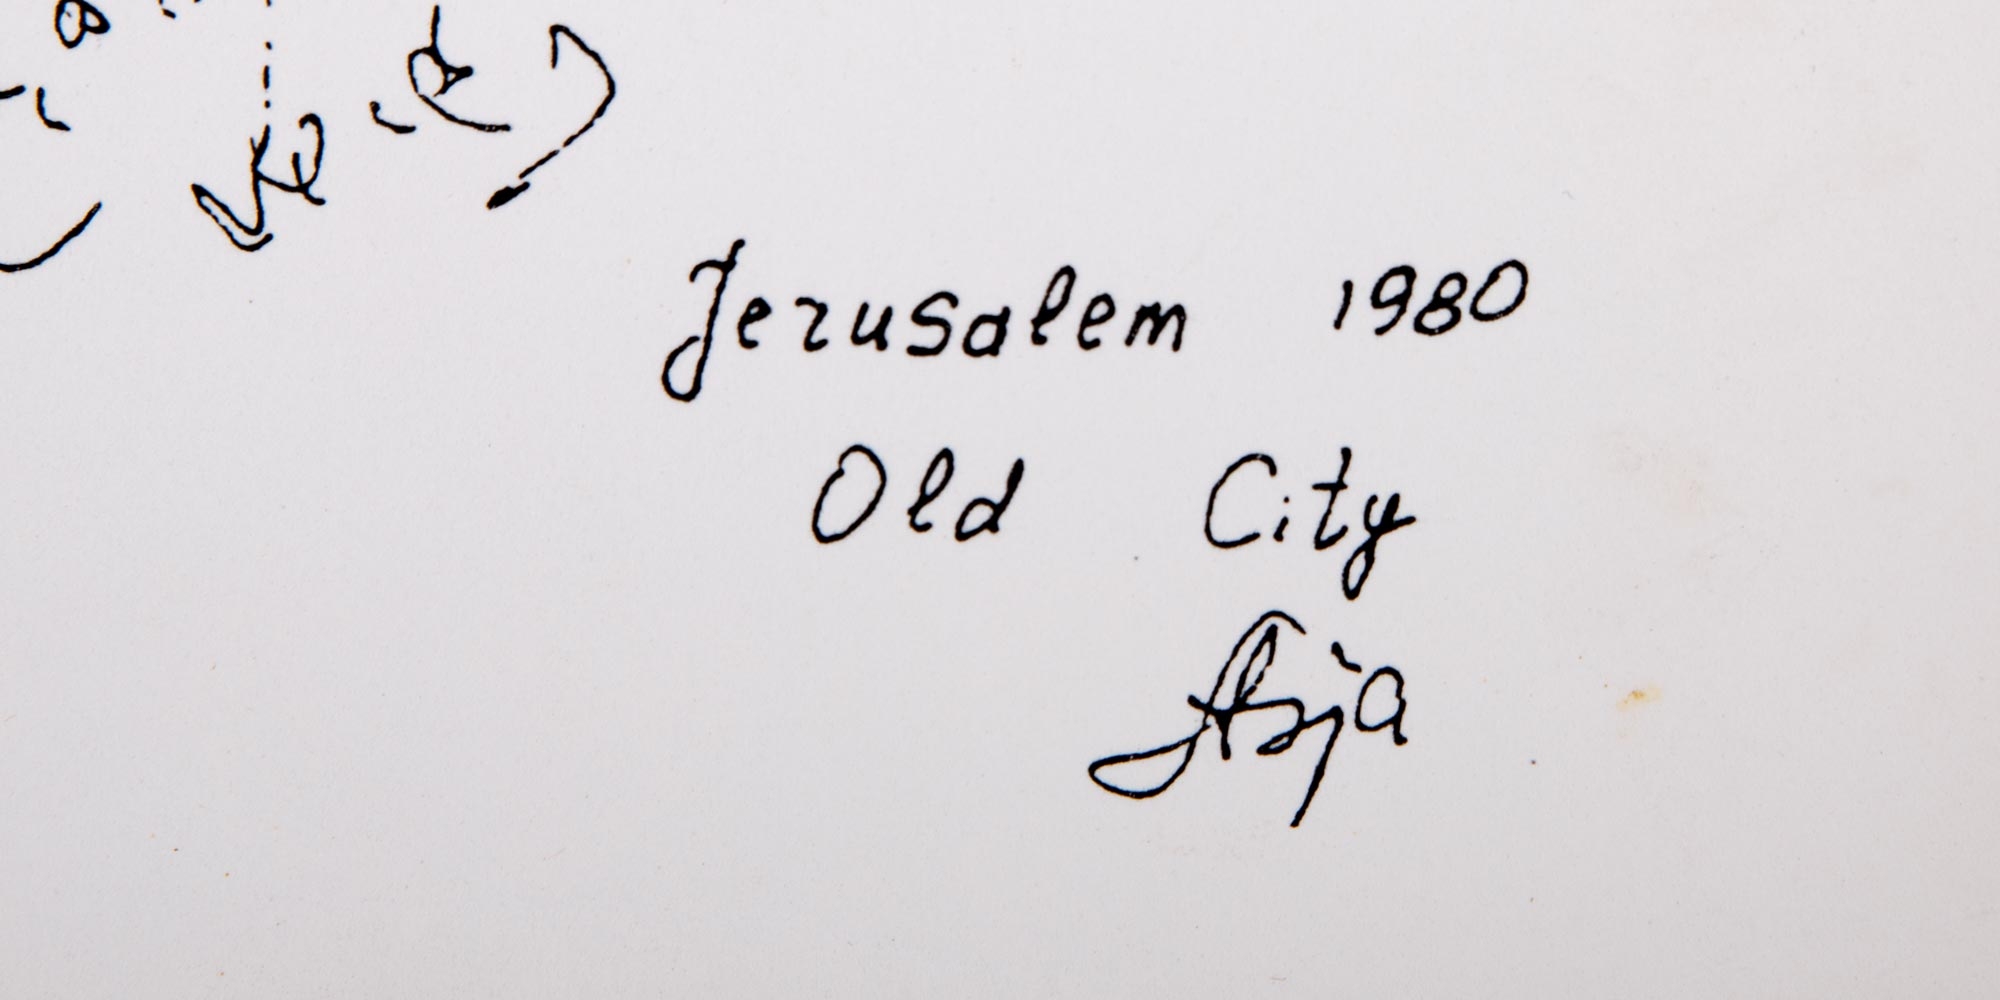 Jerusalem 1980
Old City
Asja